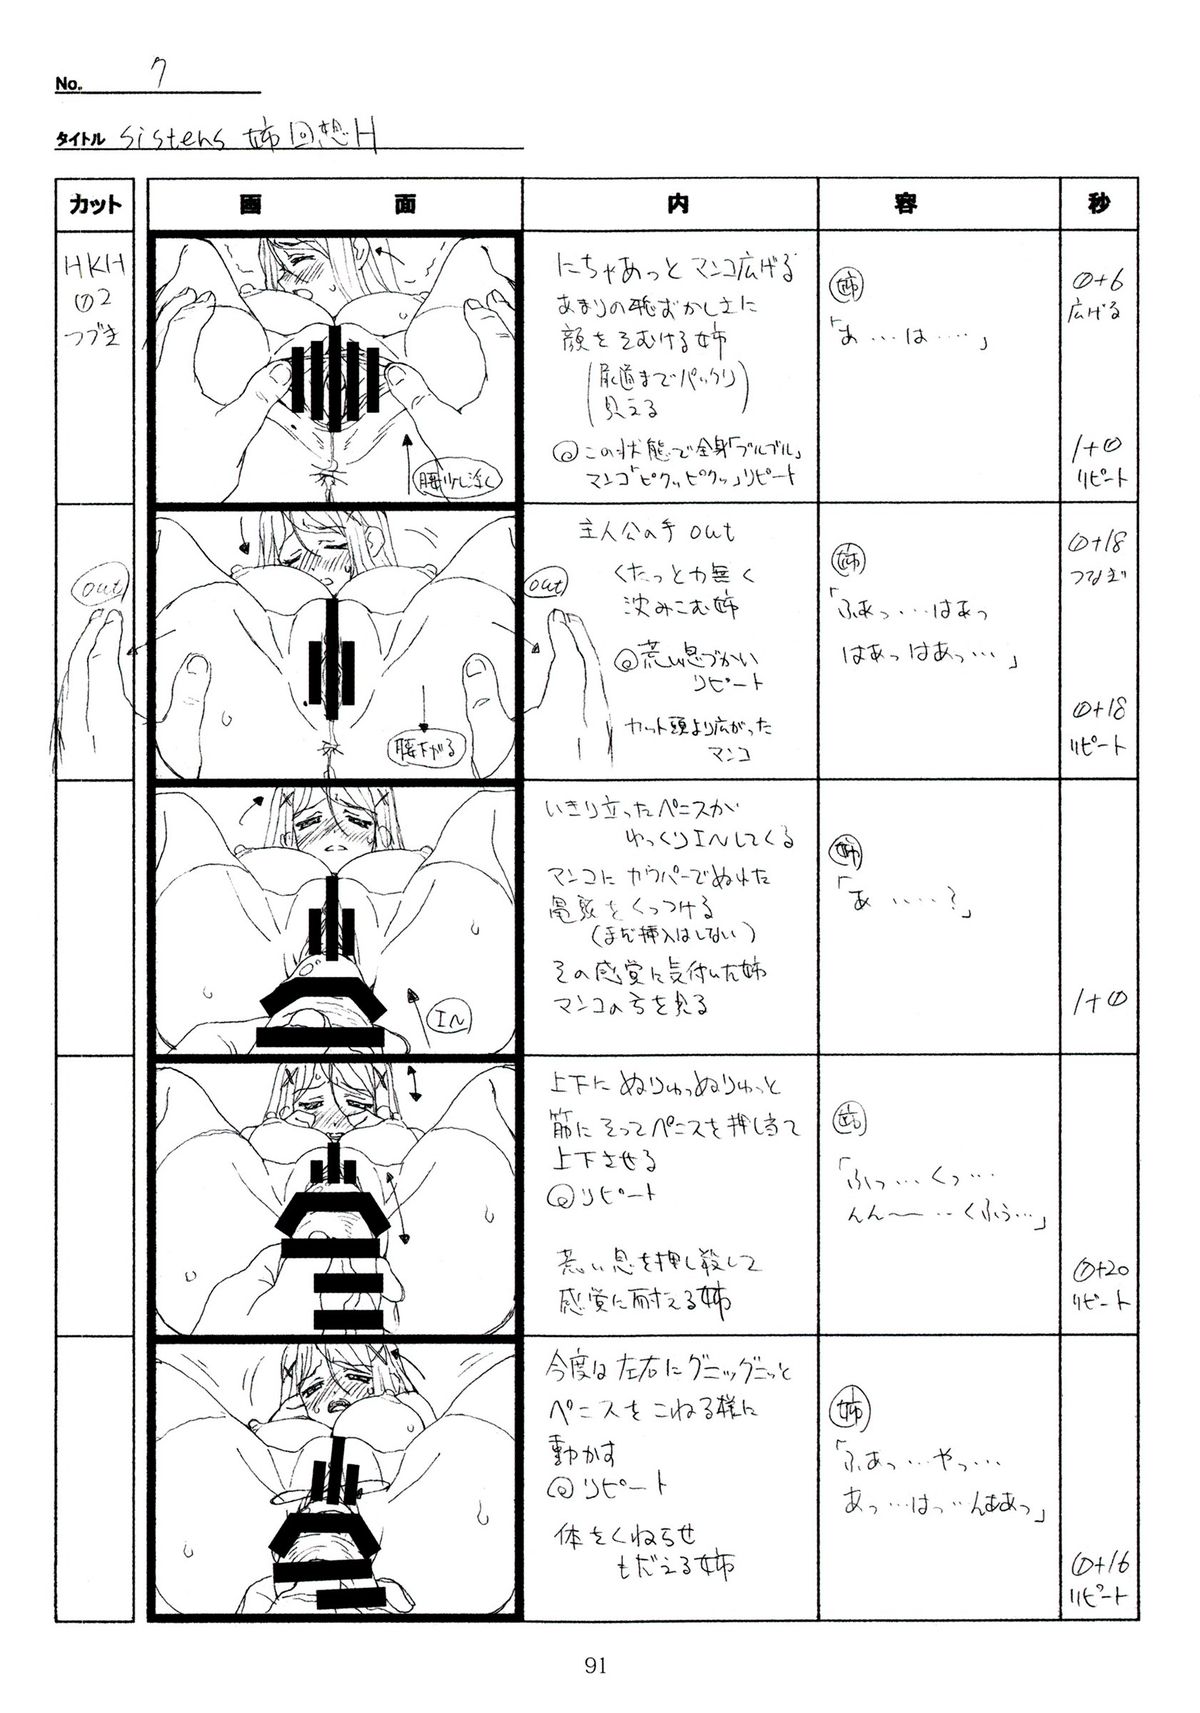 No. 7
タイトル sisters 姉回想H
カット 画面 内容 秒
HKH
①2
つづき
にちゃあっとマンコ広げる
あまりの恥ずかしさに
顔をそむける姉
(尿道までパックリ
見える)
◎この状態で全身「ブルブル」
マンコ「ピクッピクッ」リピート
腰少し浮く
姉
「あ…は‥‥」
0+6
広げる
1+0
リピート
out
out
主人公の手 out
くたっと力無く
沈みこむ姉
◎荒い息づかい
リピート
カット頭より広がった
マンコ
腰下がる
姉
「ふあっ…はあっ
はあっはあっ…」
0+18
つなぎ
0+18
リピート
いきり立ったペニスが
ゆっくりINしてくる
マンコにカウパーでぬれた
亀頭をくっつける
(まだ挿入はしない)
その感覚に気付いた姉
マンコの方を見る
IN
姉
「あ‥‥?」
1+0
上下にぬりゅっぬりゅっと
筋にそってペニスを押し当て
上下させる
◎リピート
荒い息を押し殺して
感覚に耐える姉
姉
「ふっ…くっ…
んん〜‥‥くふぅ…」
0+20
リピート
今度は左右にグニッグニっと
ペニスをこねる様に
動かす
◎リピート
体をくねらせ
もだえる姉
姉
「ふあっ…やっ…
あっ…はっ‥んああっ」
0+16
リピート
91